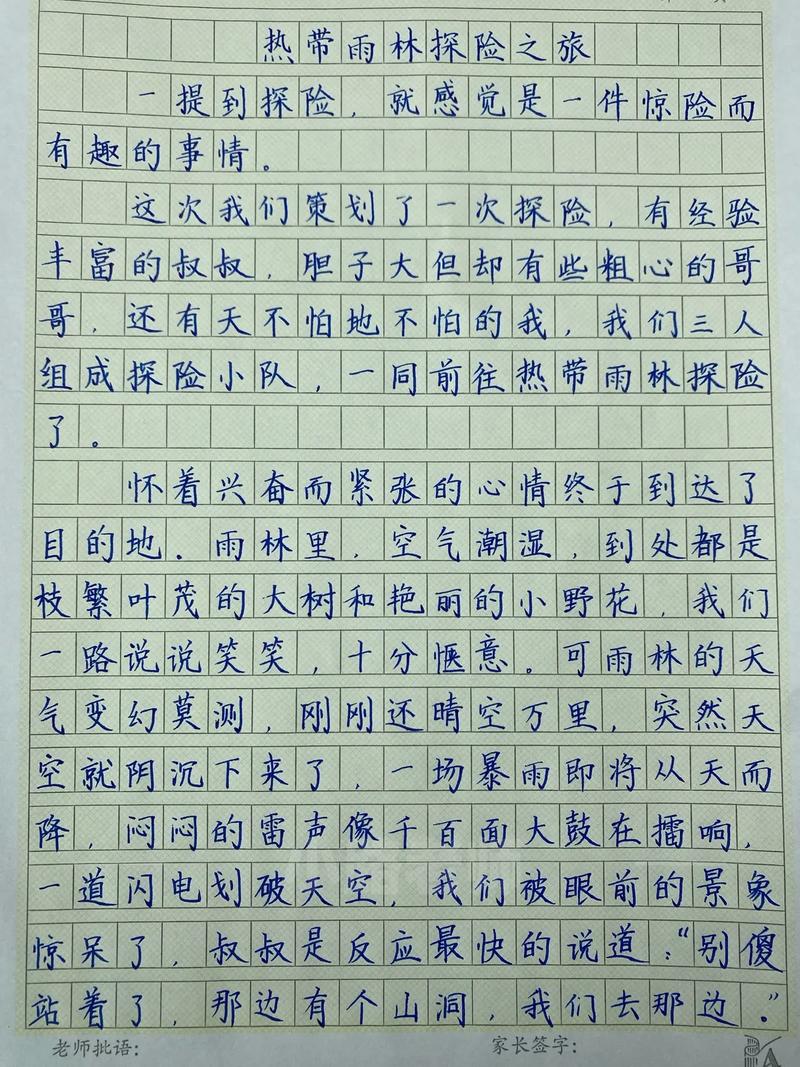 热带雨林探险之旅
一提到探险，就感觉是一件惊险而
有趣的事情。
这次我们策划了一次探险，有经验
丰富的叔叔，胆子大但却有些粗心的哥
哥，还有天不怕地不怕的我，我们三人
组成探险小队，一同前往热带雨林探险
了。
怀着兴奋而紧张的心情终于到达了
目的地．雨林里，空气潮湿，到处都是
枝繁叶茂的大树和艳丽的小野花，我们
一路说说笑笑，十分惬意。可雨林的天
气变幻莫测，刚刚还晴空万里，突然天
空就阴沉下来了，一场暴雨即将从天而
降，闷闷的雷声像千百面大鼓在擂响，
一道闪电划破天空，我们被眼前的景象
惊呆了，叔叔是反应最快的说道：“别傻
站着了，那边有个山洞，我们去那边．”
老师批语：
家长签字：